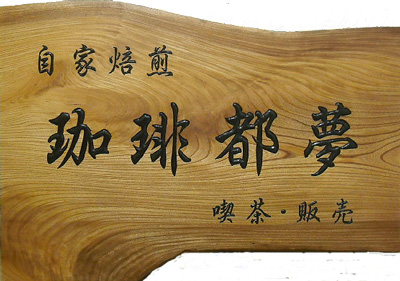 自家焙煎
珈琲都夢
喫茶・販売